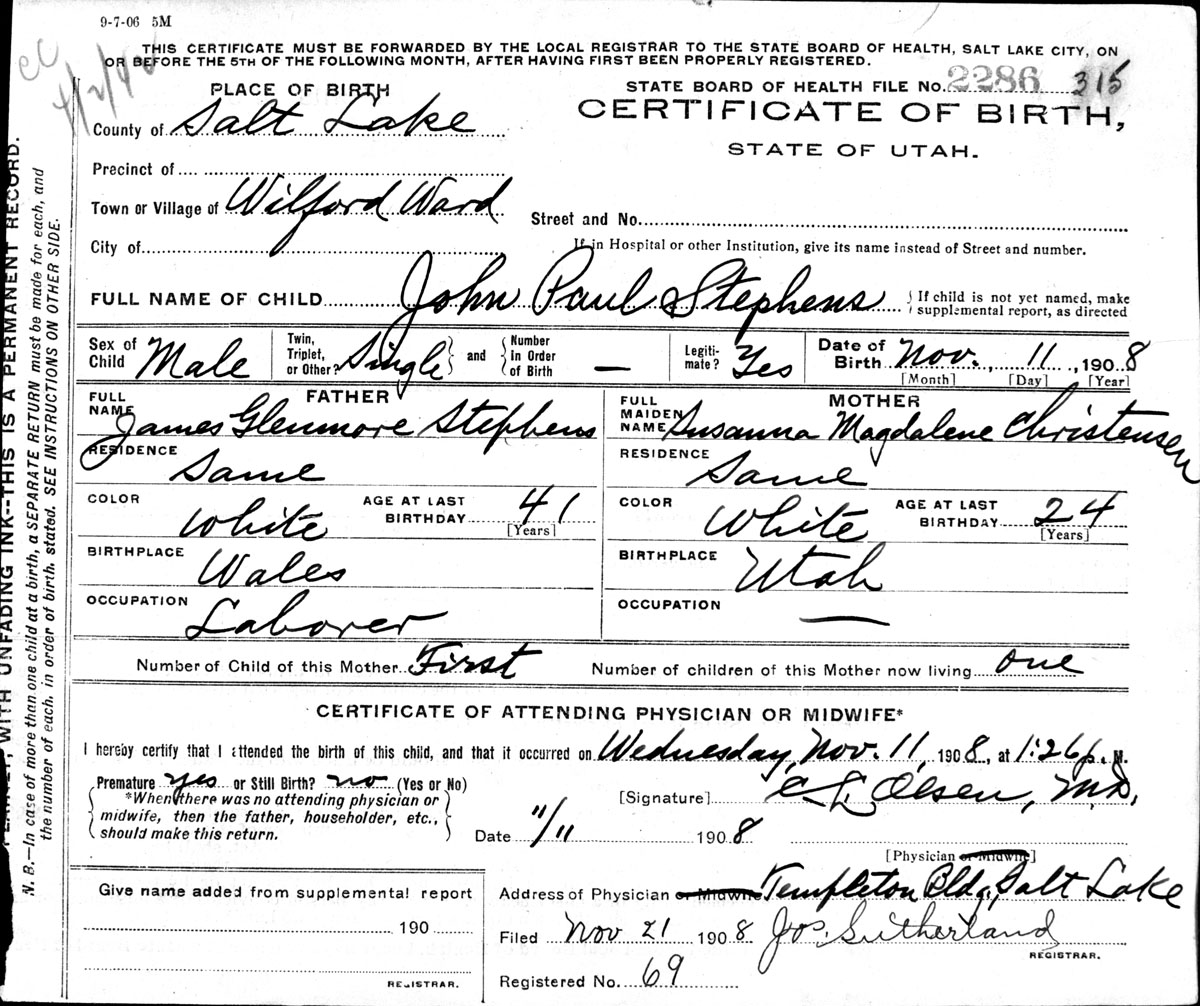 9-7-06 5M
CC
THIS CERTIFICATE MUST BE FORWARDED BY THE LOCAL REGISTRAR TO THE STATE BOARD OF HEALTH, SALT LAKE CITY, ON
OR BEFORE THE 5TH OF THE FOLLOWING MONTH, AFTER HAVING FIRST BEEN PROPERLY REGISTERED.
PLACE OF BIRTH
STATE BOARD OF HEALTH FILE No. 2286 315
County of Salt Lake
CERTIFICATE OF BIRTH,
STATE OF UTAH.
Precinct of
Town or Village of Wilford Ward
Street and No.
City of
If in Hospital or other Institution, give its name instead of Street and number.
FULL NAME OF CHILD John Paul Stephens
If child is not yet named, make
supplemental report, as directed
Sex of Child Male
Twin, Triplet, or Other? Single and Number in Order of Birth —
Legiti-mate? Yes
Date of Birth Nov. 11, 1908
[Month] [Day] [Year]
FATHER
FULL NAME James Glenmore Stephens
RESIDENCE Same
COLOR White AGE AT LAST BIRTHDAY 41
[Years]
BIRTHPLACE Wales
OCCUPATION Laborer
MOTHER
FULL MAIDEN NAME Susanna Magdalene Christensen
RESIDENCE Same
COLOR White AGE AT LAST BIRTHDAY 24
[Years]
BIRTHPLACE Utah
OCCUPATION —
Number of Child of this Mother First Number of children of this Mother now living one
CERTIFICATE OF ATTENDING PHYSICIAN OR MIDWIFE*
I hereby certify that I attended the birth of this child, and that it occurred on Wednesday, Nov. 11, 1908, at 1:26 p. M.
Premature yes or Still Birth? no (Yes or No)
*When there was no attending physician or
midwife, then the father, householder, etc.,
should make this return.
[Signature] C L Olsen, M.D.
Date 11/11 1908
[Physician or Midwife]
Give name added from supplemental report
190
REGISTRAR.
Address of Physician or Midwife Templeton Bldg, Salt Lake
Filed Nov 21 1908 Jos. Sutherland
REGISTRAR.
Registered No. 69
WITH UNFADING INK--THIS IS A PERMANENT RECORD.
N. B.—In case of more than one child at a birth, a SEPARATE RETURN must be made for each, and
the number of each, in order of birth, stated. SEE INSTRUCTIONS ON OTHER SIDE.